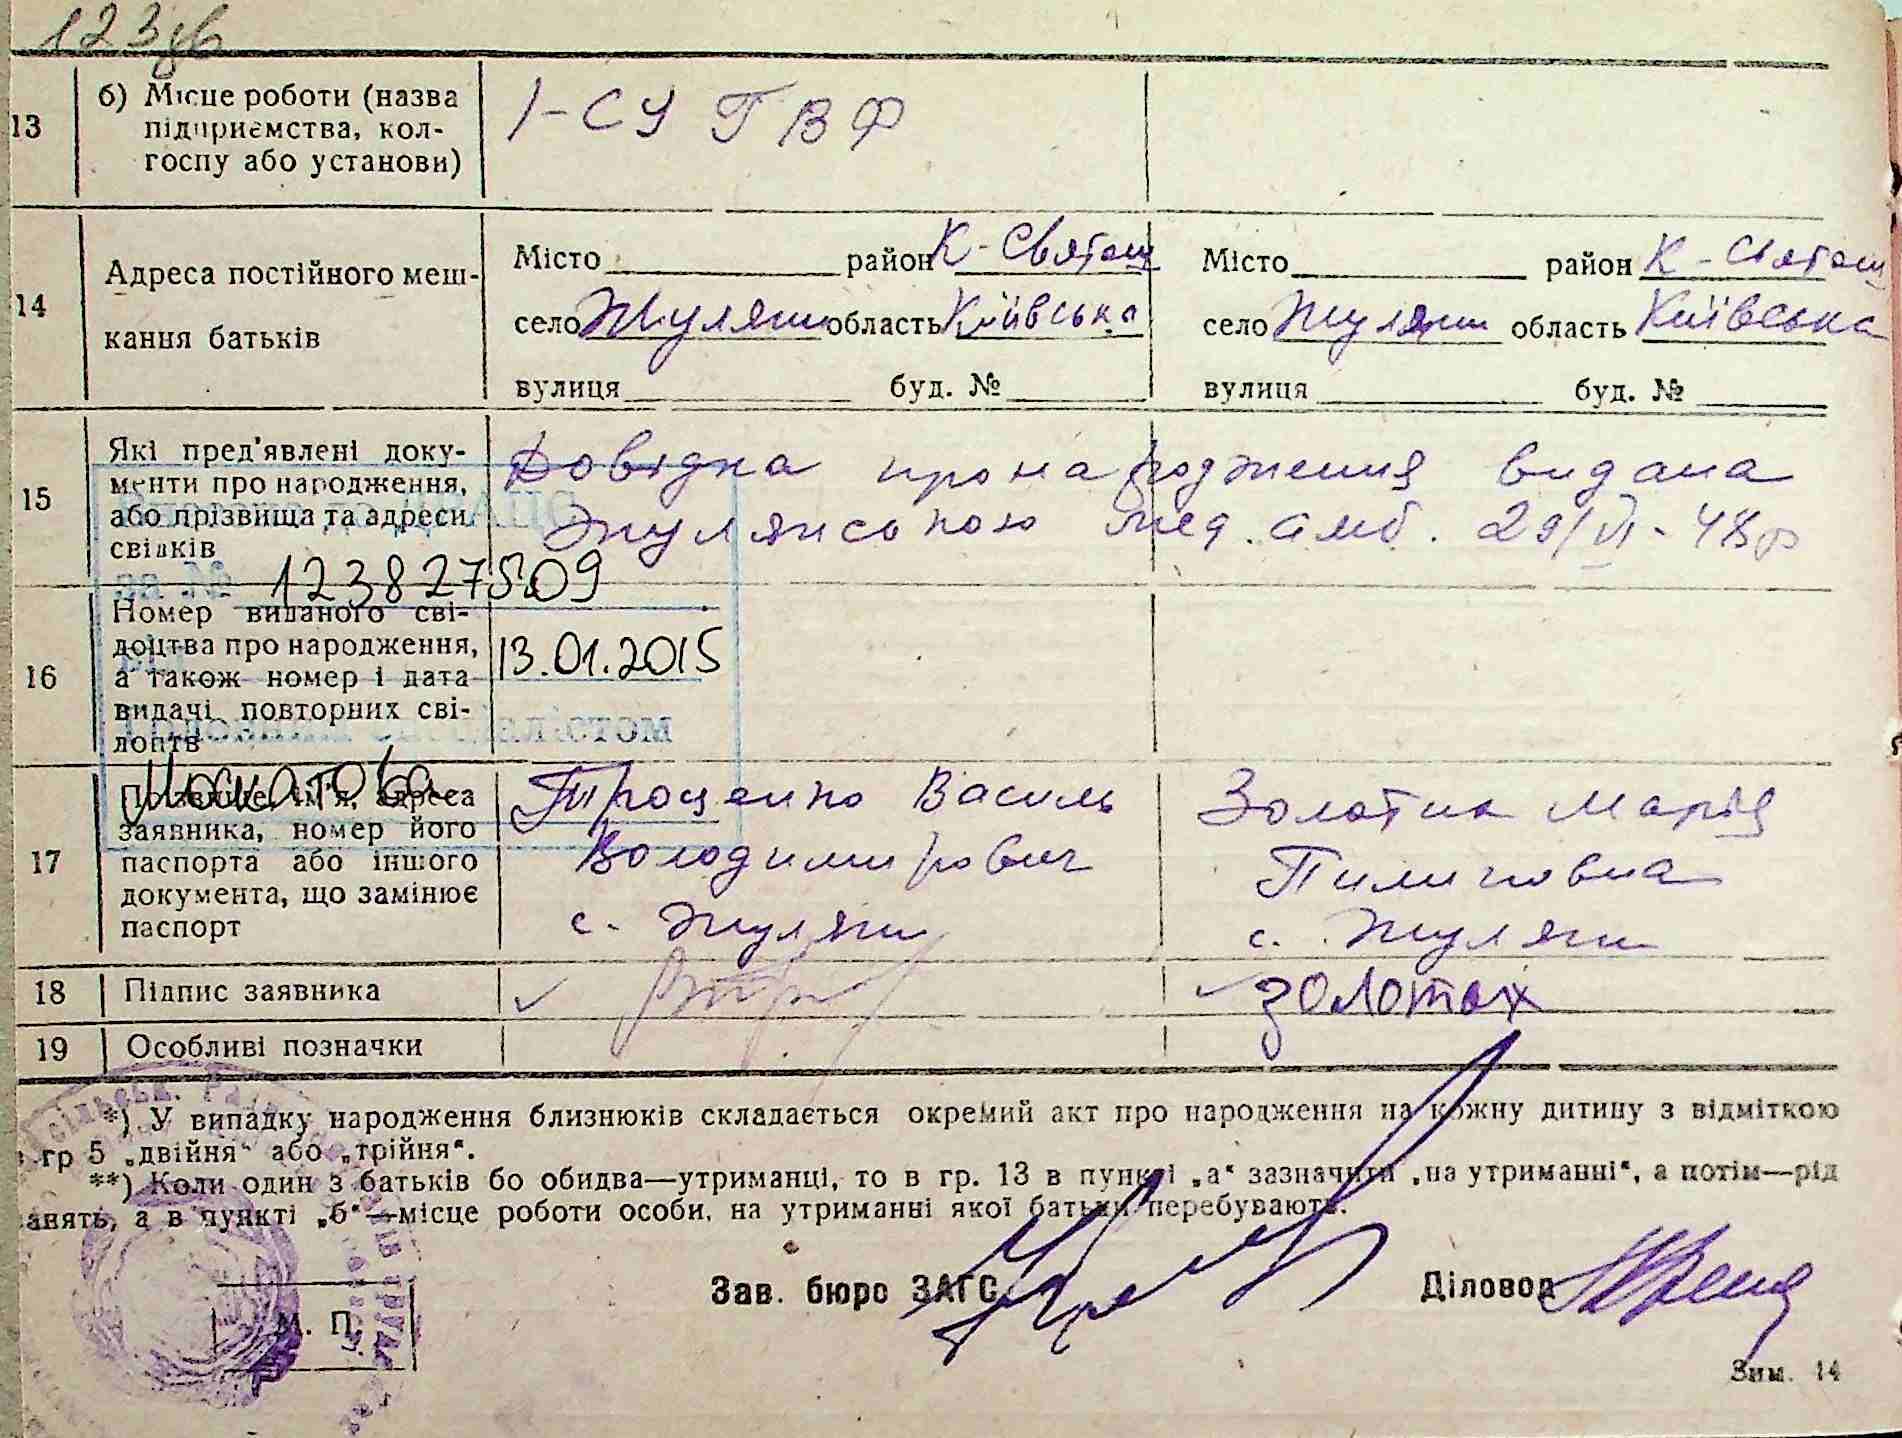 123
13 б) Місце роботи (назва
підприємства, кол-
госпу або установи)
1-СУ ГВФ
14 Адреса постійного меш-
кання батьків
Місто район К-Святош
село Жуляни область Київська
вулиця буд. №
Місто район К-Святош
село Жуляни область Київська
вулиця буд. №
15 Які пред'явлені доку-
менти про народження,
або прізвища та адреси
свідків
Довідка про народження видана
Жулянською мед. амб. 29/VI-48р
123827509
16 Номер виданого сві-
доцтва про народження,
а також номер і дата
видачі повторних сві-
доцтв
13.01.2015
17 Прізвище, ім'я, адреса
заявника, номер його
паспорта або іншого
документа, що замінює
паспорт
Проценко Василь
Володимирович
с. Жуляни
Золотих Марія
Пилиповна
с. Жуляни
18 Підпис заявника
✓
✓ Золотых
19 Особливі позначки
*) У випадку народження близнюків складається окремий акт про народження на кожну дитину з відміткою
в гр 5 „двійня“ або „трійня“.
**) Коли один з батьків бо обидва—утриманці, то в гр. 13 в пункті „а“ зазначити „на утриманні“, а потім—рід
занять, а в пункті „б“—місце роботи особи, на утриманні якої батьки перебувають.
Зав. бюро ЗАГС
Діловод
М. П.
Зим. 14